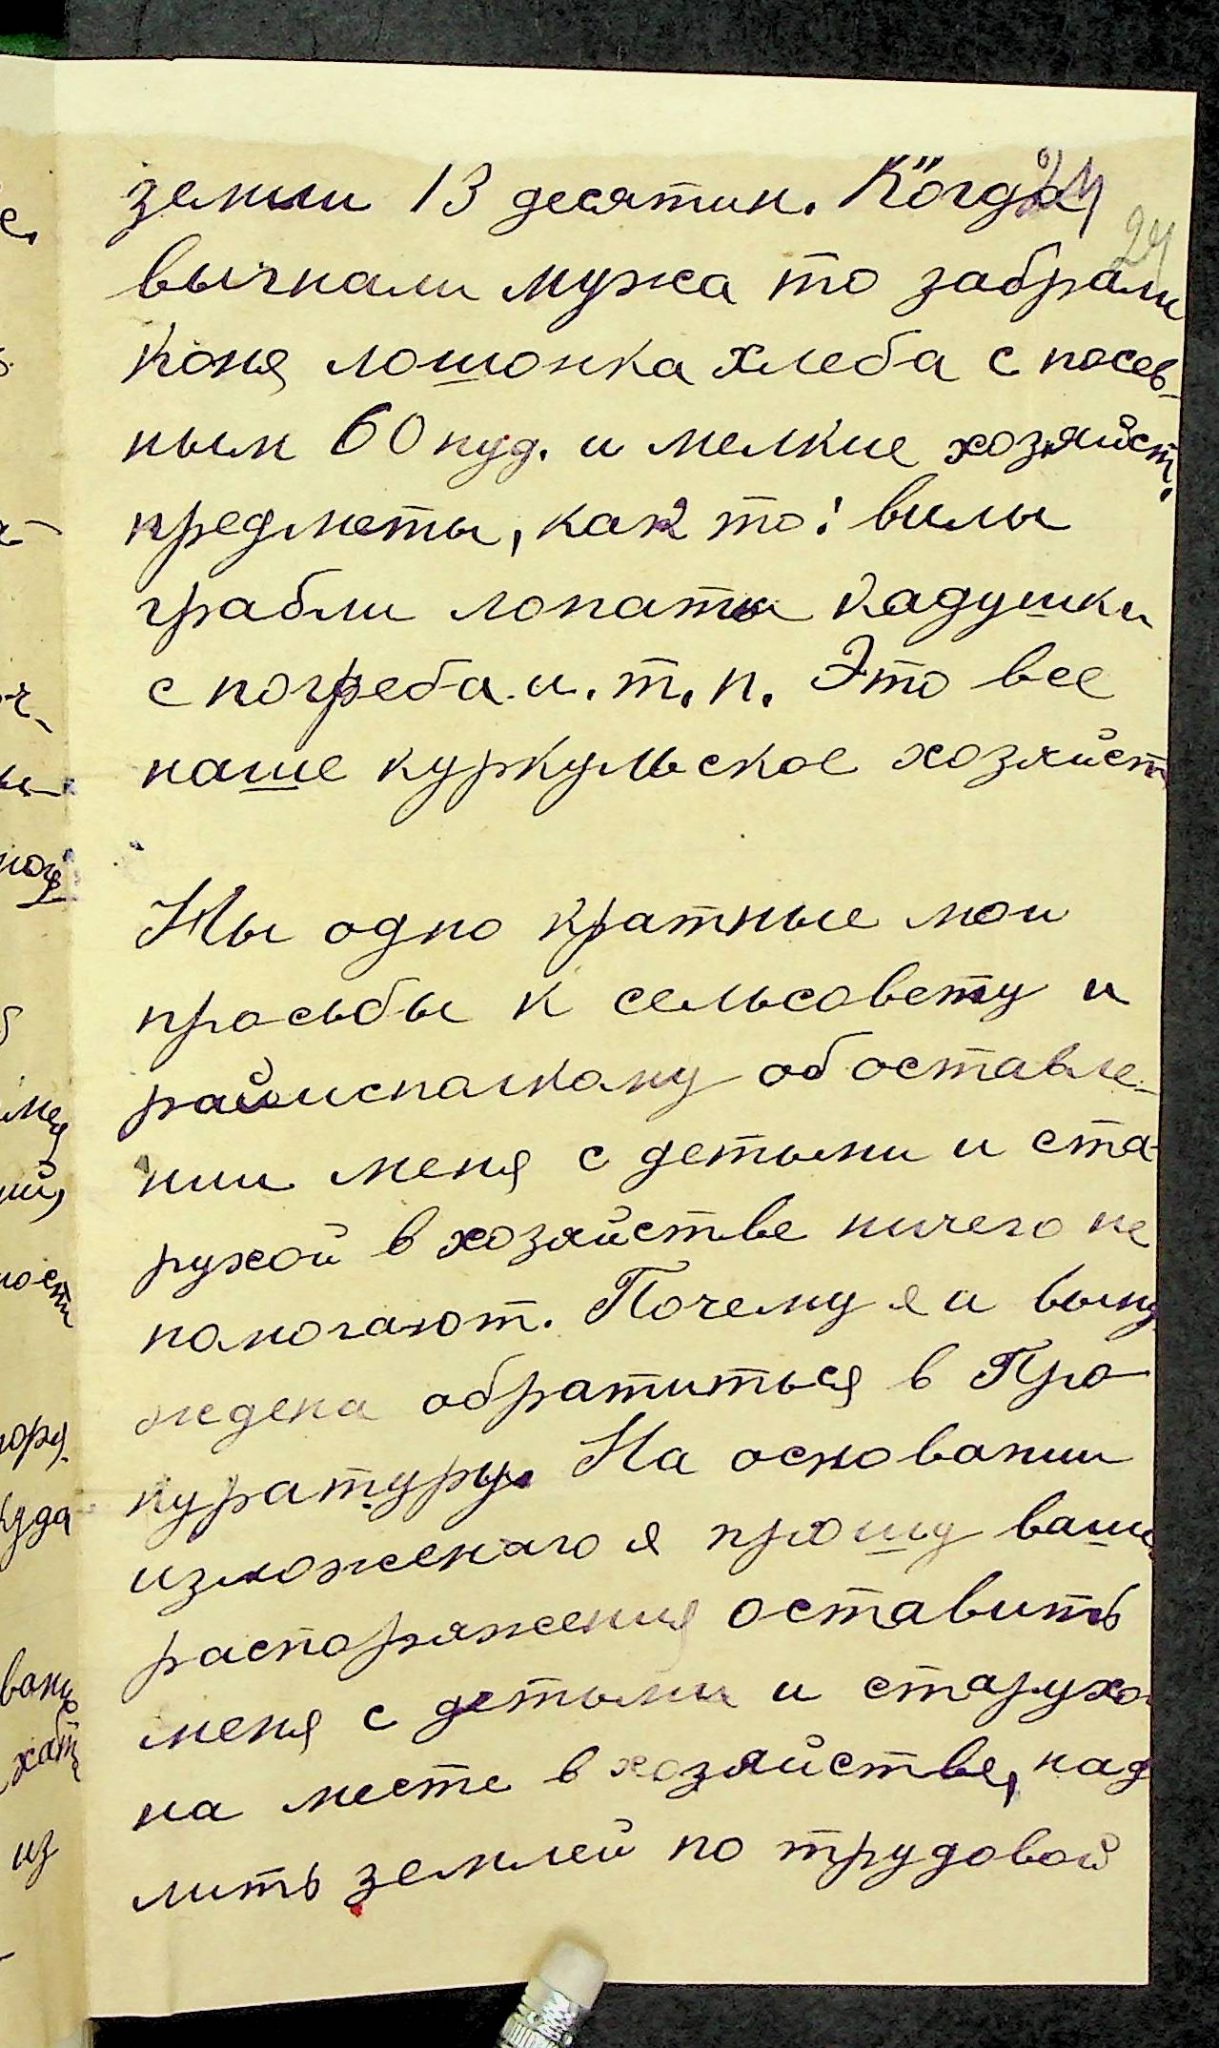 земли 13 десятин. Когда
24
24
вычнали мужа то забрали
коня лошонка хлеба с посев-
ным 60 пуд. и мелкие хозяйст.
предметы, как то: вилы
грабли лопаты кадушки
с погреба и. т. п. Это все
наше куркульское хозяйст
Ны одно кратные мои
просьбы к сельсовету и
райисполкому об оставле-
нии меня с детьми и ста-
рухой в хозяйстве ничего не
помогают. Почему я и выну
ждена обратиться в Про
куратуру. На основании
изложенаго я прошу ваши
распоряжения оставить
меня с детьми и старухо
на месте в хозяйстве, над
лить землей по трудовой